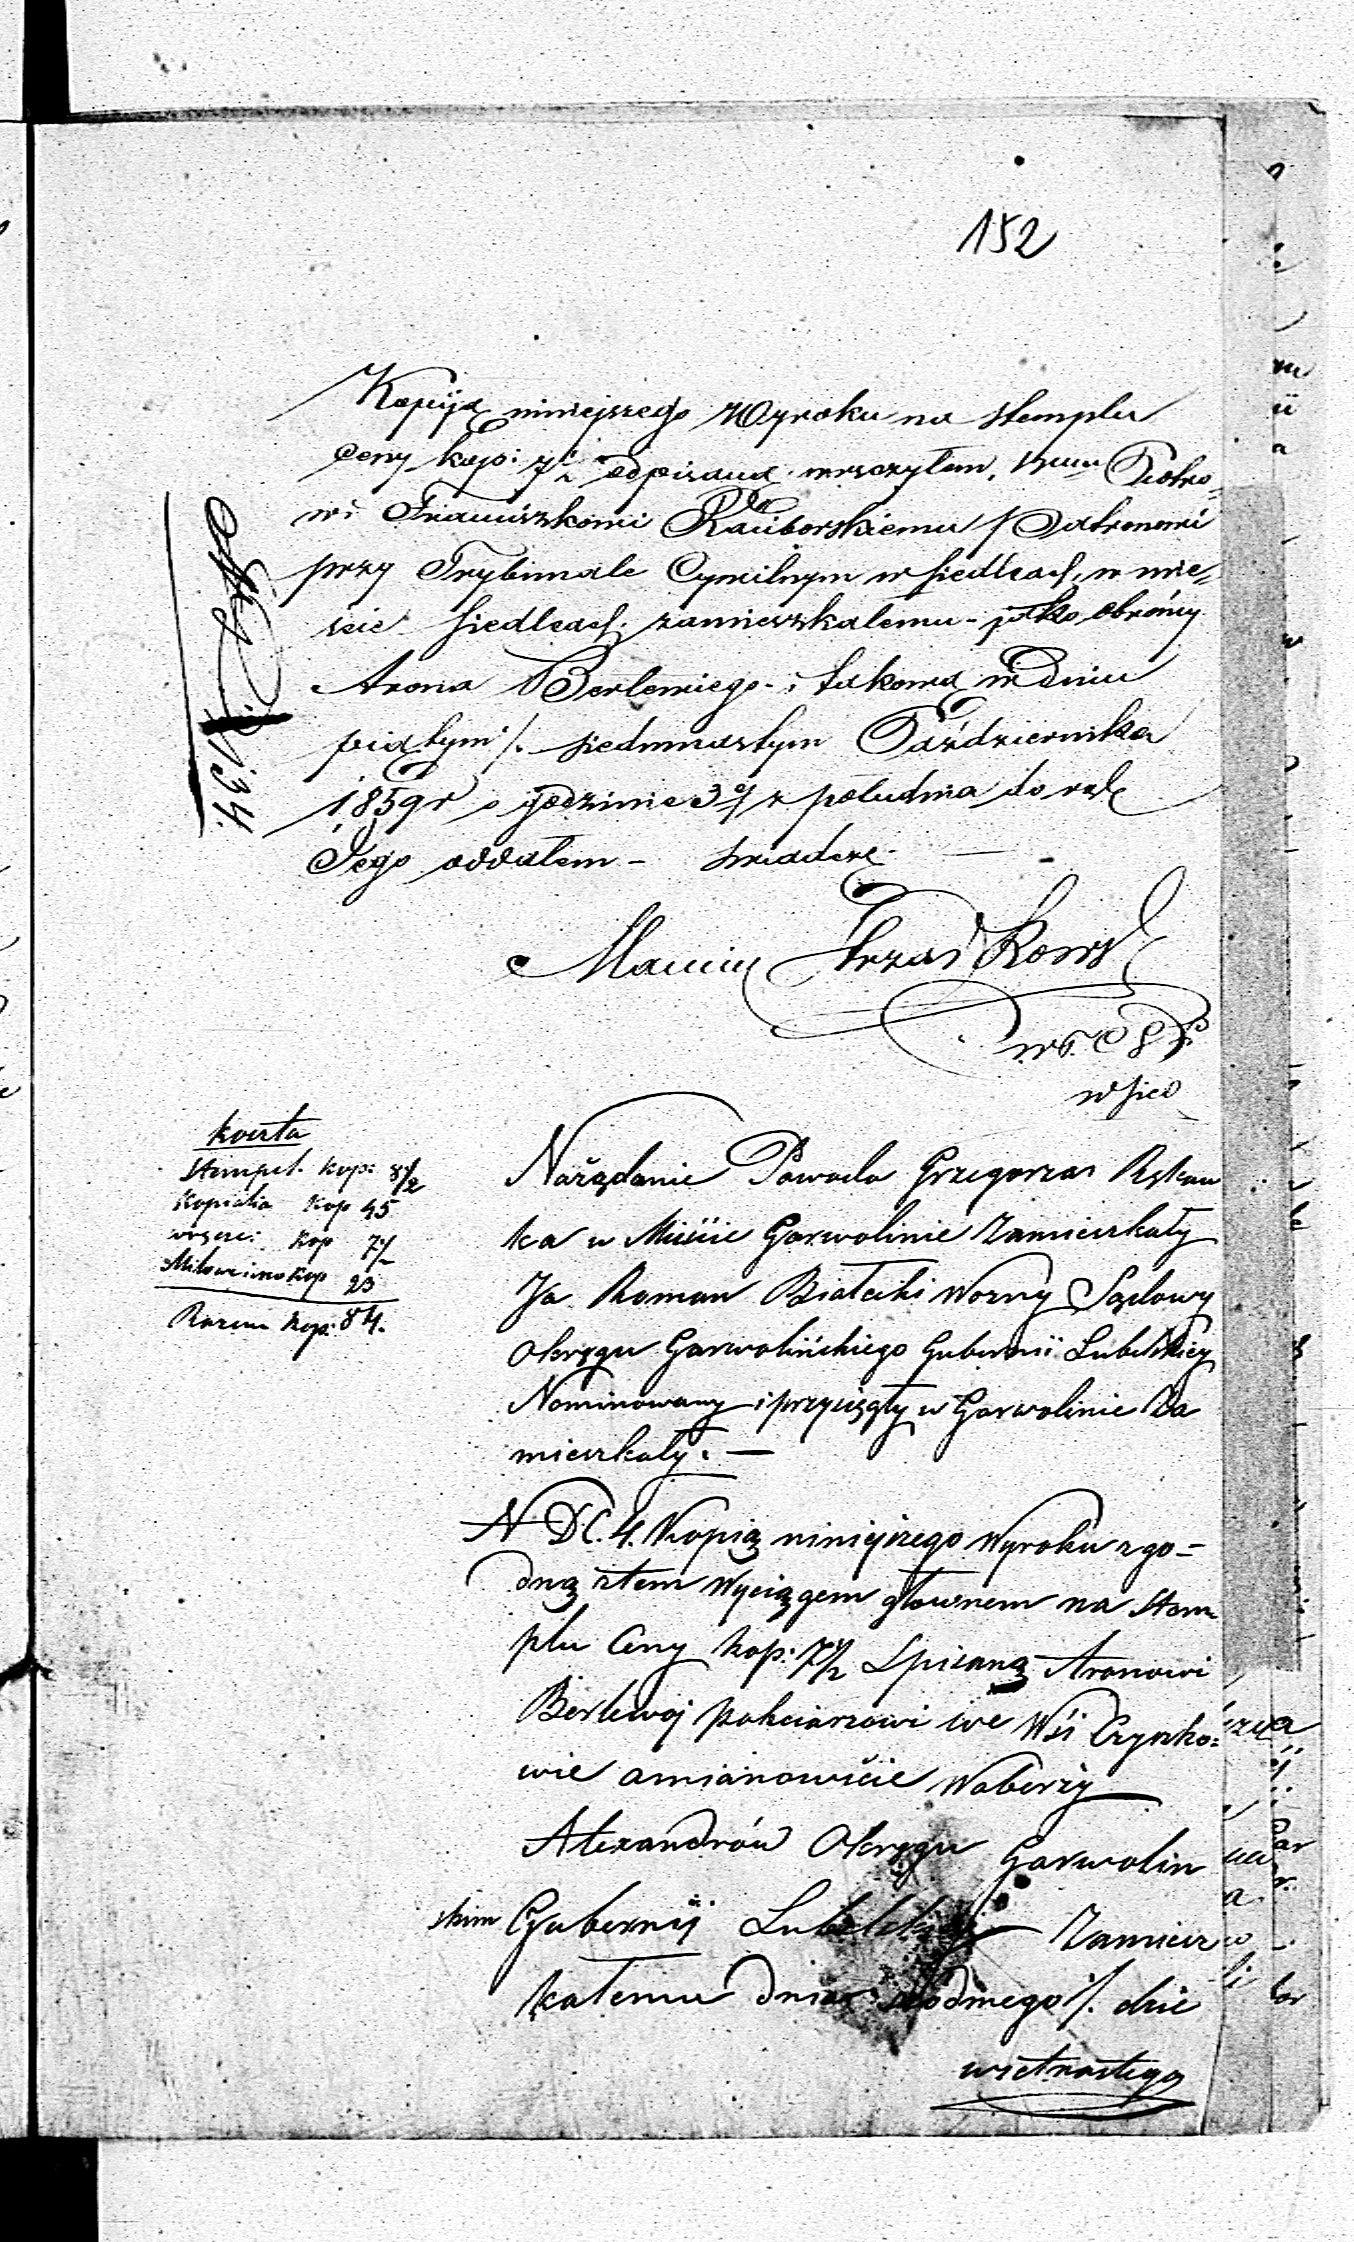 152
Kopiją niniejszego Wyroku na stemplu
Ceny kop: 7½ odpisaną wręczyłem, Piotro
wi Franciszkowi Raciborskiemu Patronowi
przy Trybunale Cywilnym w Siedlcach, w mie,
ście Siedlcach zamieszkałemu - jako obrońcy
Arona Berlewiego - i takową w Dniu
piątym /. siedmnastym Października
1859 r o godzinie 3 z południa do rąk
Jego oddałem - świadczę -
134
w Sied
koszta
Stempel. kop: 8½
Kopialia kop 45
wręcz: kop 7½
kop 23
Razem kop: 84.
Na żądanie Powoda Grzegorza
ka w Mieście Garwolinie zamieszkały
Ja Roman Białecki Woźny Sądowy
Okręgu Garwolińskiego Gubernii Lubelskiey
Nominowany i przysięgły w Garwolinie Za
mieszkały. —
N D.C. 4. Kopią niniejszego Wyroku zgo=
dną z tem Wyciągem głownem na Stem
plu Ceny kop: 7½ Spisaną Aronowi
Berlewoj pakciarzowi we Wsi Czyszko=
wie a mianowicie
Alexandrów Okręgu Garwolin
skim Gubernij Lubelskiej Zamiesz
kałemu dnia siódmego /. dzie
wietnastego